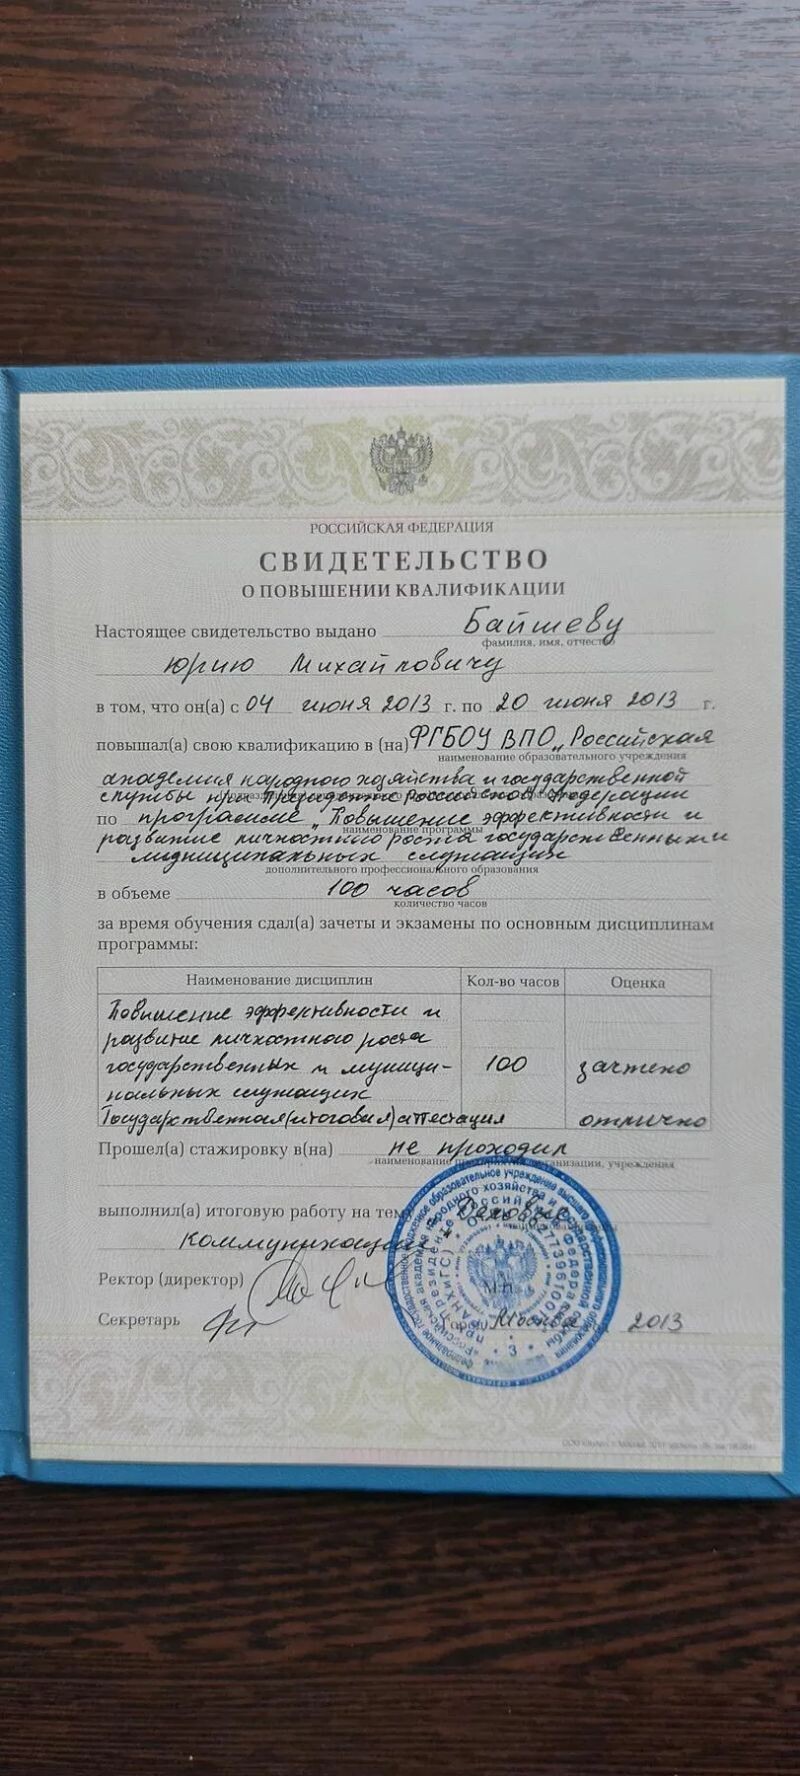 РОССИЙСКАЯ ФЕДЕРАЦИЯ
СВИДЕТЕЛЬСТВО
О ПОВЫШЕНИИ КВАЛИФИКАЦИИ
Настоящее свидетельство выдано Байшеву
фамилия, имя, отчество
Юрию Михайловичу
в том, что он(а) с 04 июня 2013 г. по 20 июня 2013 г.
повышал(а) свою квалификацию в (на) ФГБОУ ВПО „Российская
наименование образовательного учреждения
академия народного хозяйства и государственной
службы при Президенте Российской Федерации
по программе „Повышение эффективности и
наименование программы
развитие личностного роста государственных и
муниципальных служащих
дополнительного профессионального образования
в объеме 100 часов
количество часов
за время обучения сдал(а) зачеты и экзамены по основным дисциплинам
программы:
Наименование дисциплин Кол-во часов Оценка
Повышение эффективности и
развитие личностного роста
государственных и муници-
пальных служащих 100 зачтено
Государственная (итоговая) аттестация отлично
Прошел(а) стажировку в(на) не проходил
наименование предприятия, организации, учреждения
выполнил(а) итоговую работу на тему Деловые
коммуникации
Ректор (директор)
М.П.
Секретарь
Город Москва 2013